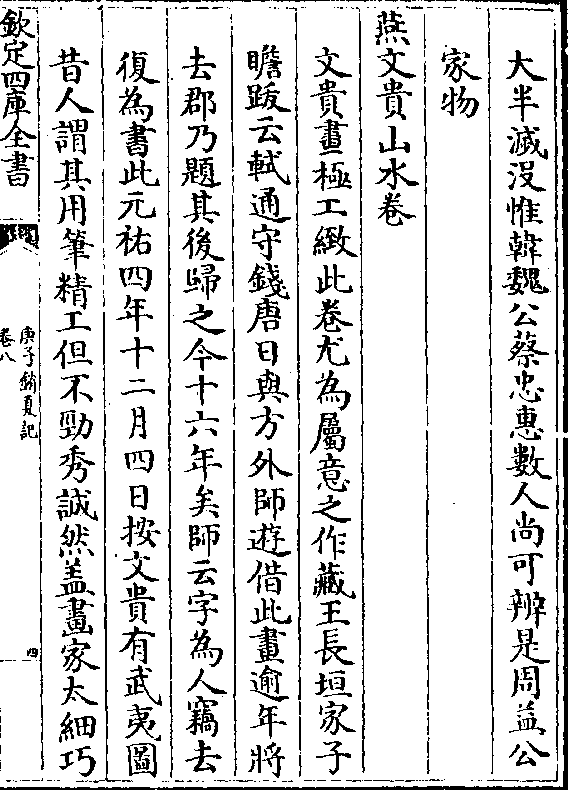 大半滅沒惟韓魏公蔡忠惠數人尚可辨是周益公
家物
燕文貴山水卷
文貴畫極工緻此卷尤為屬意之作藏王長垣家子
瞻跋云軾通守錢唐日與方外師遊借此畫逾年將
去郡乃題其後歸之今十六年矣師云字為人竊去
復為書此元祐四年十二月四日按文貴有武夷圖
昔人謂其用筆精工但不勁秀誠然盖畫家太細巧
欽定四庫全書
庚子銷夏記
卷八
四